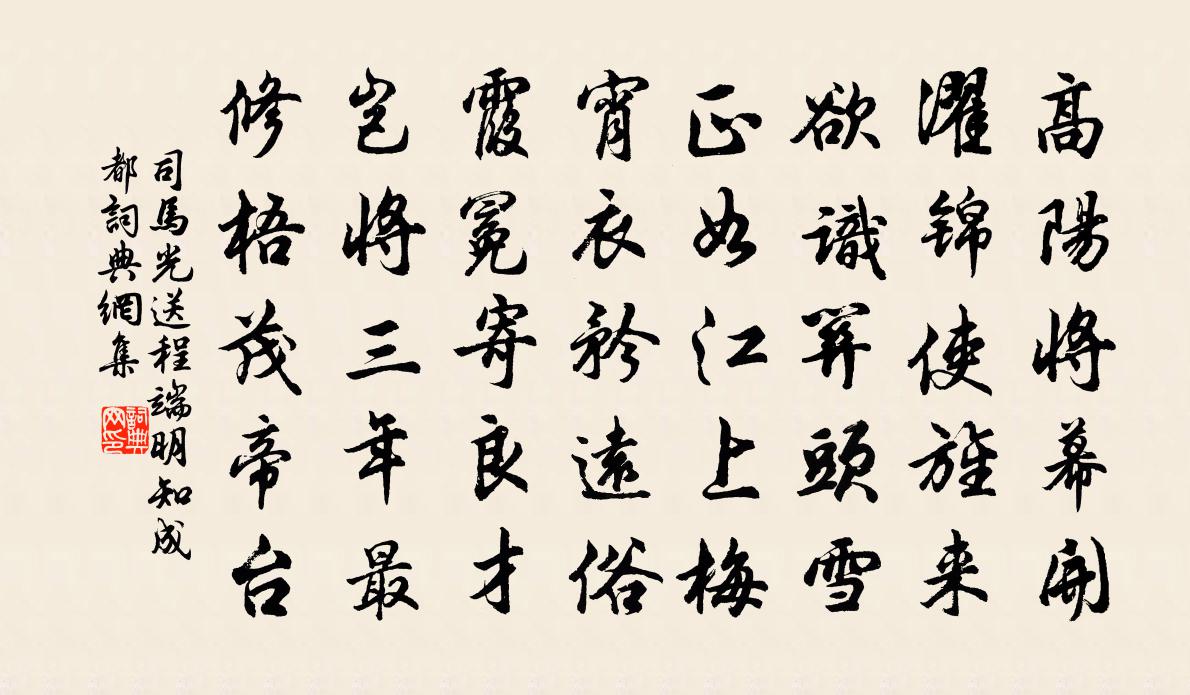 高陽將幕開
濯錦使旌来
欲識關頭雪
正如江上梅
宵衣矜遠俗
霞冕寄良才
岂將三年最
修梧茂帝台
司馬光送程端明知成
都詞典網集
詞典
网印